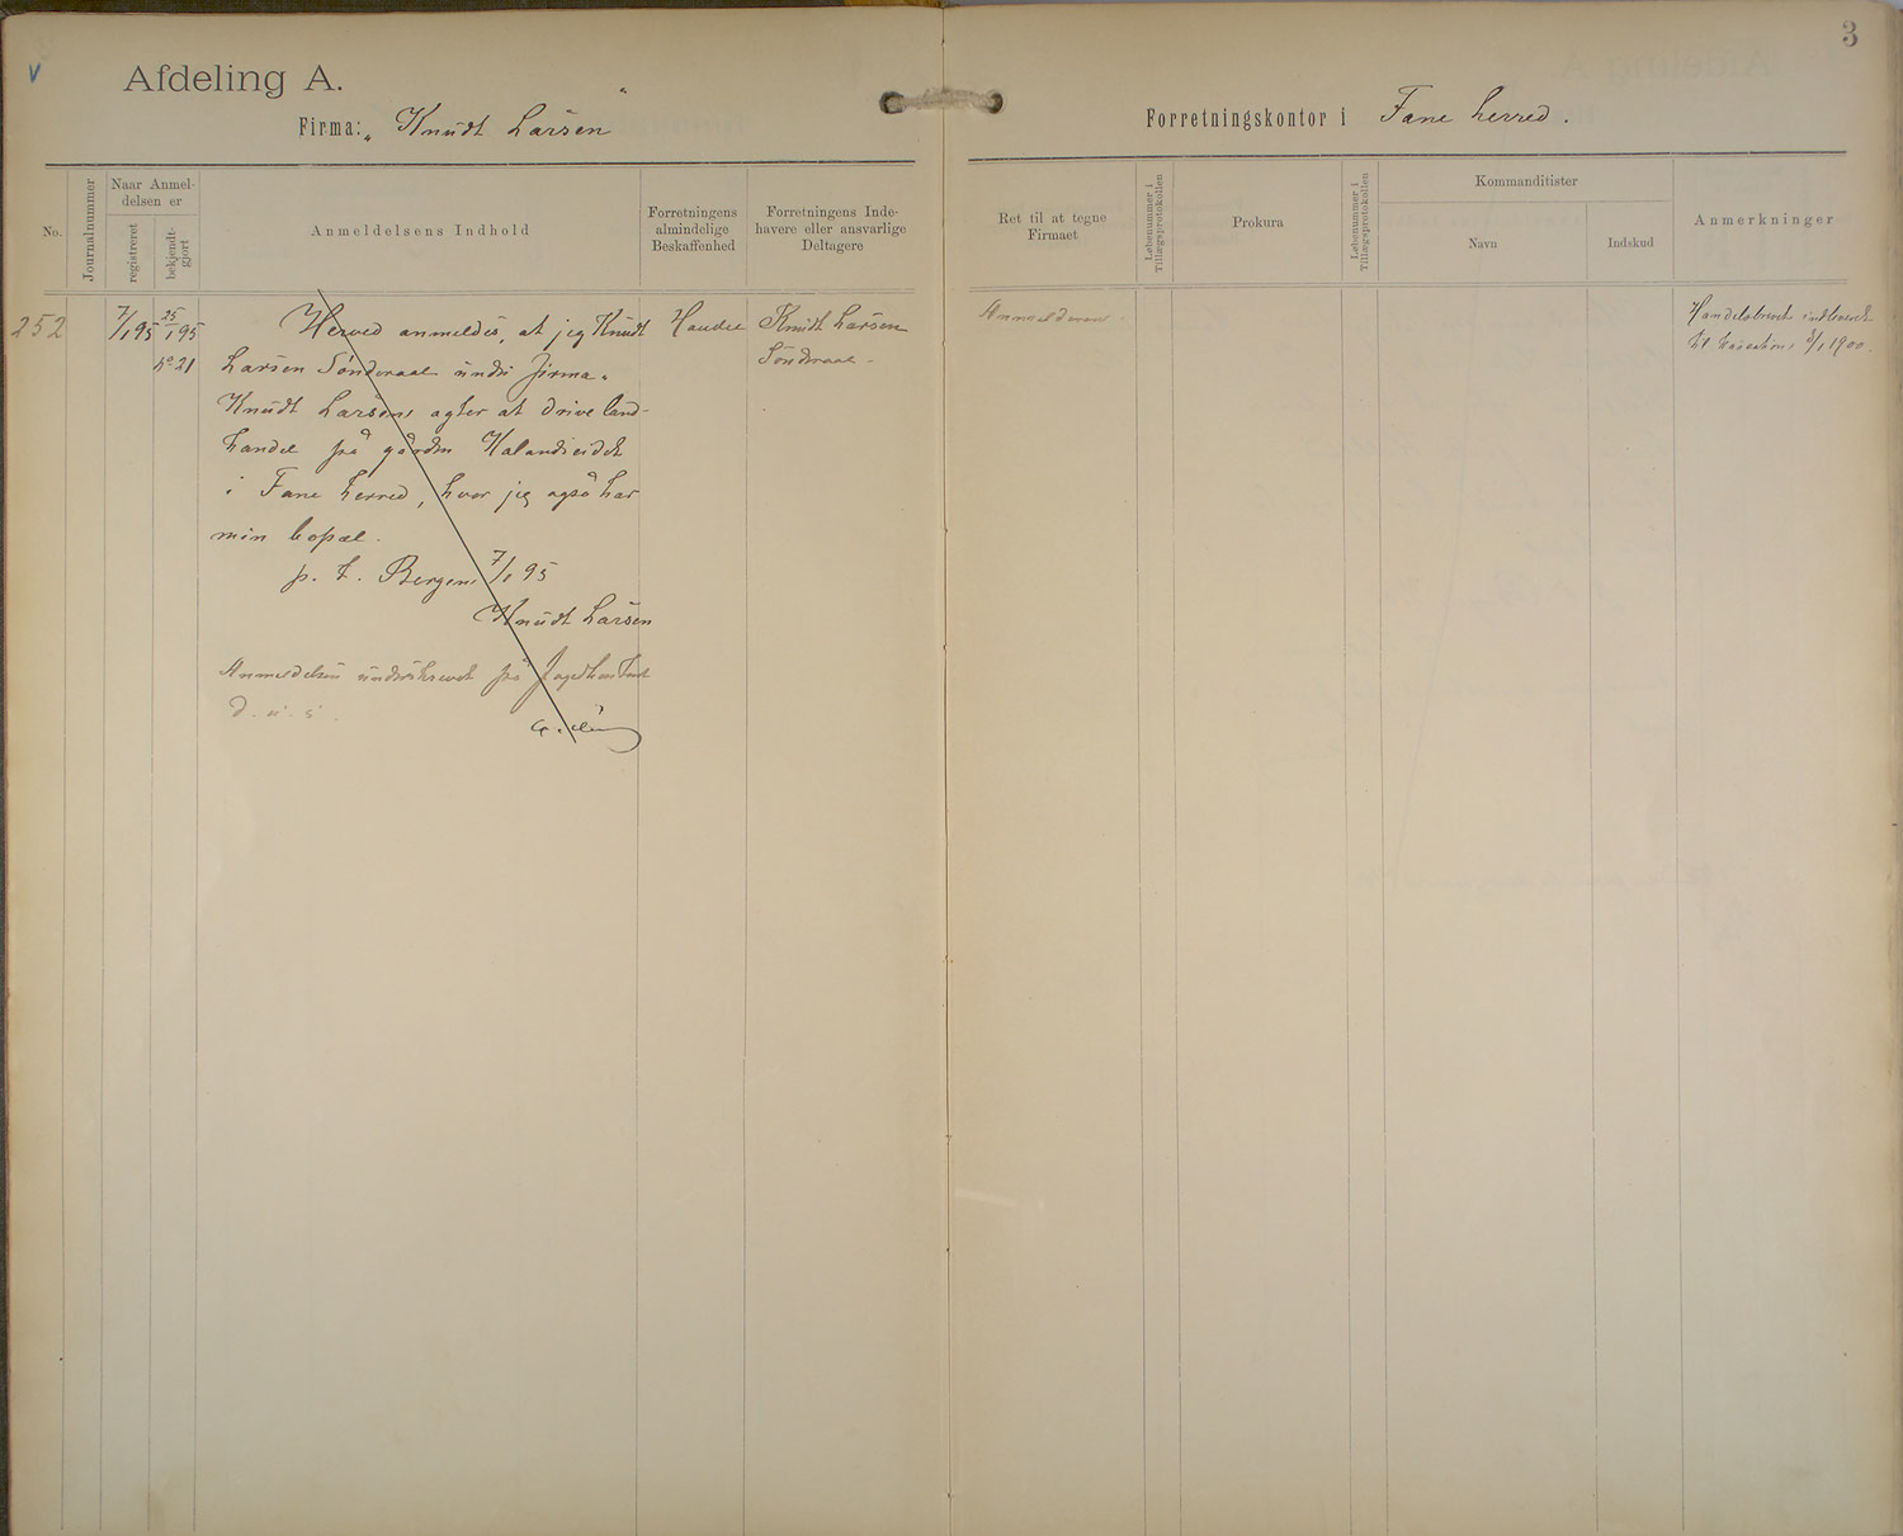 3
V
Afdeling A.
Firma: „Knudt Larsen"
Forretningskontor i Fane herred.
No.
Journalnummer
Naar Anmel-
delsen er
registreret
bekjendt-
gjort
Anmeldelsens Indhold
Forretningens
almindelige
Beskaffenhed
Forretningens Inde-
havere eller ansvarlige
Deltagere
Ret til at tegne
Firmaet
Løbenummer i
Tillægsprotokollen
Prokura
Løbenummer i
Tillægsprotokollen
Kommanditister
Navn
Indskud
Anmerkninger
252
7/1 95
25/1 95
No 21
Herved anmeldes, at jeg Knudt
Larsen Sönderaal under firma „
Knudt Larsen" agter at drive land-
handel på gården Kalandseidet
i Fane herred, hvor jeg også har
min bopæl.
p. t. Bergen 7/1 95
Knudt Larsen
Anmeldelsen underskrevet på
d. u. s.
Handel
Knudt Larsen
Sönderaal
Anmelderen
Handelsbrevet indleveret
til kassation 3/1 1900.